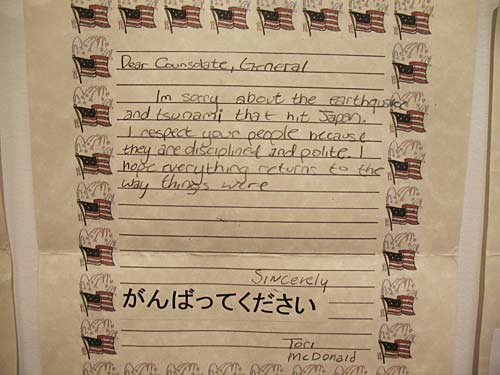 Dear Counsolate, General
Im sorry about the earthquake
and tsunami that hit Japan.
I respect your people because
they are disciplined and polite. I
hope everything returns to the
way things were
Sincerely
がんばってください
Tori
McDonald